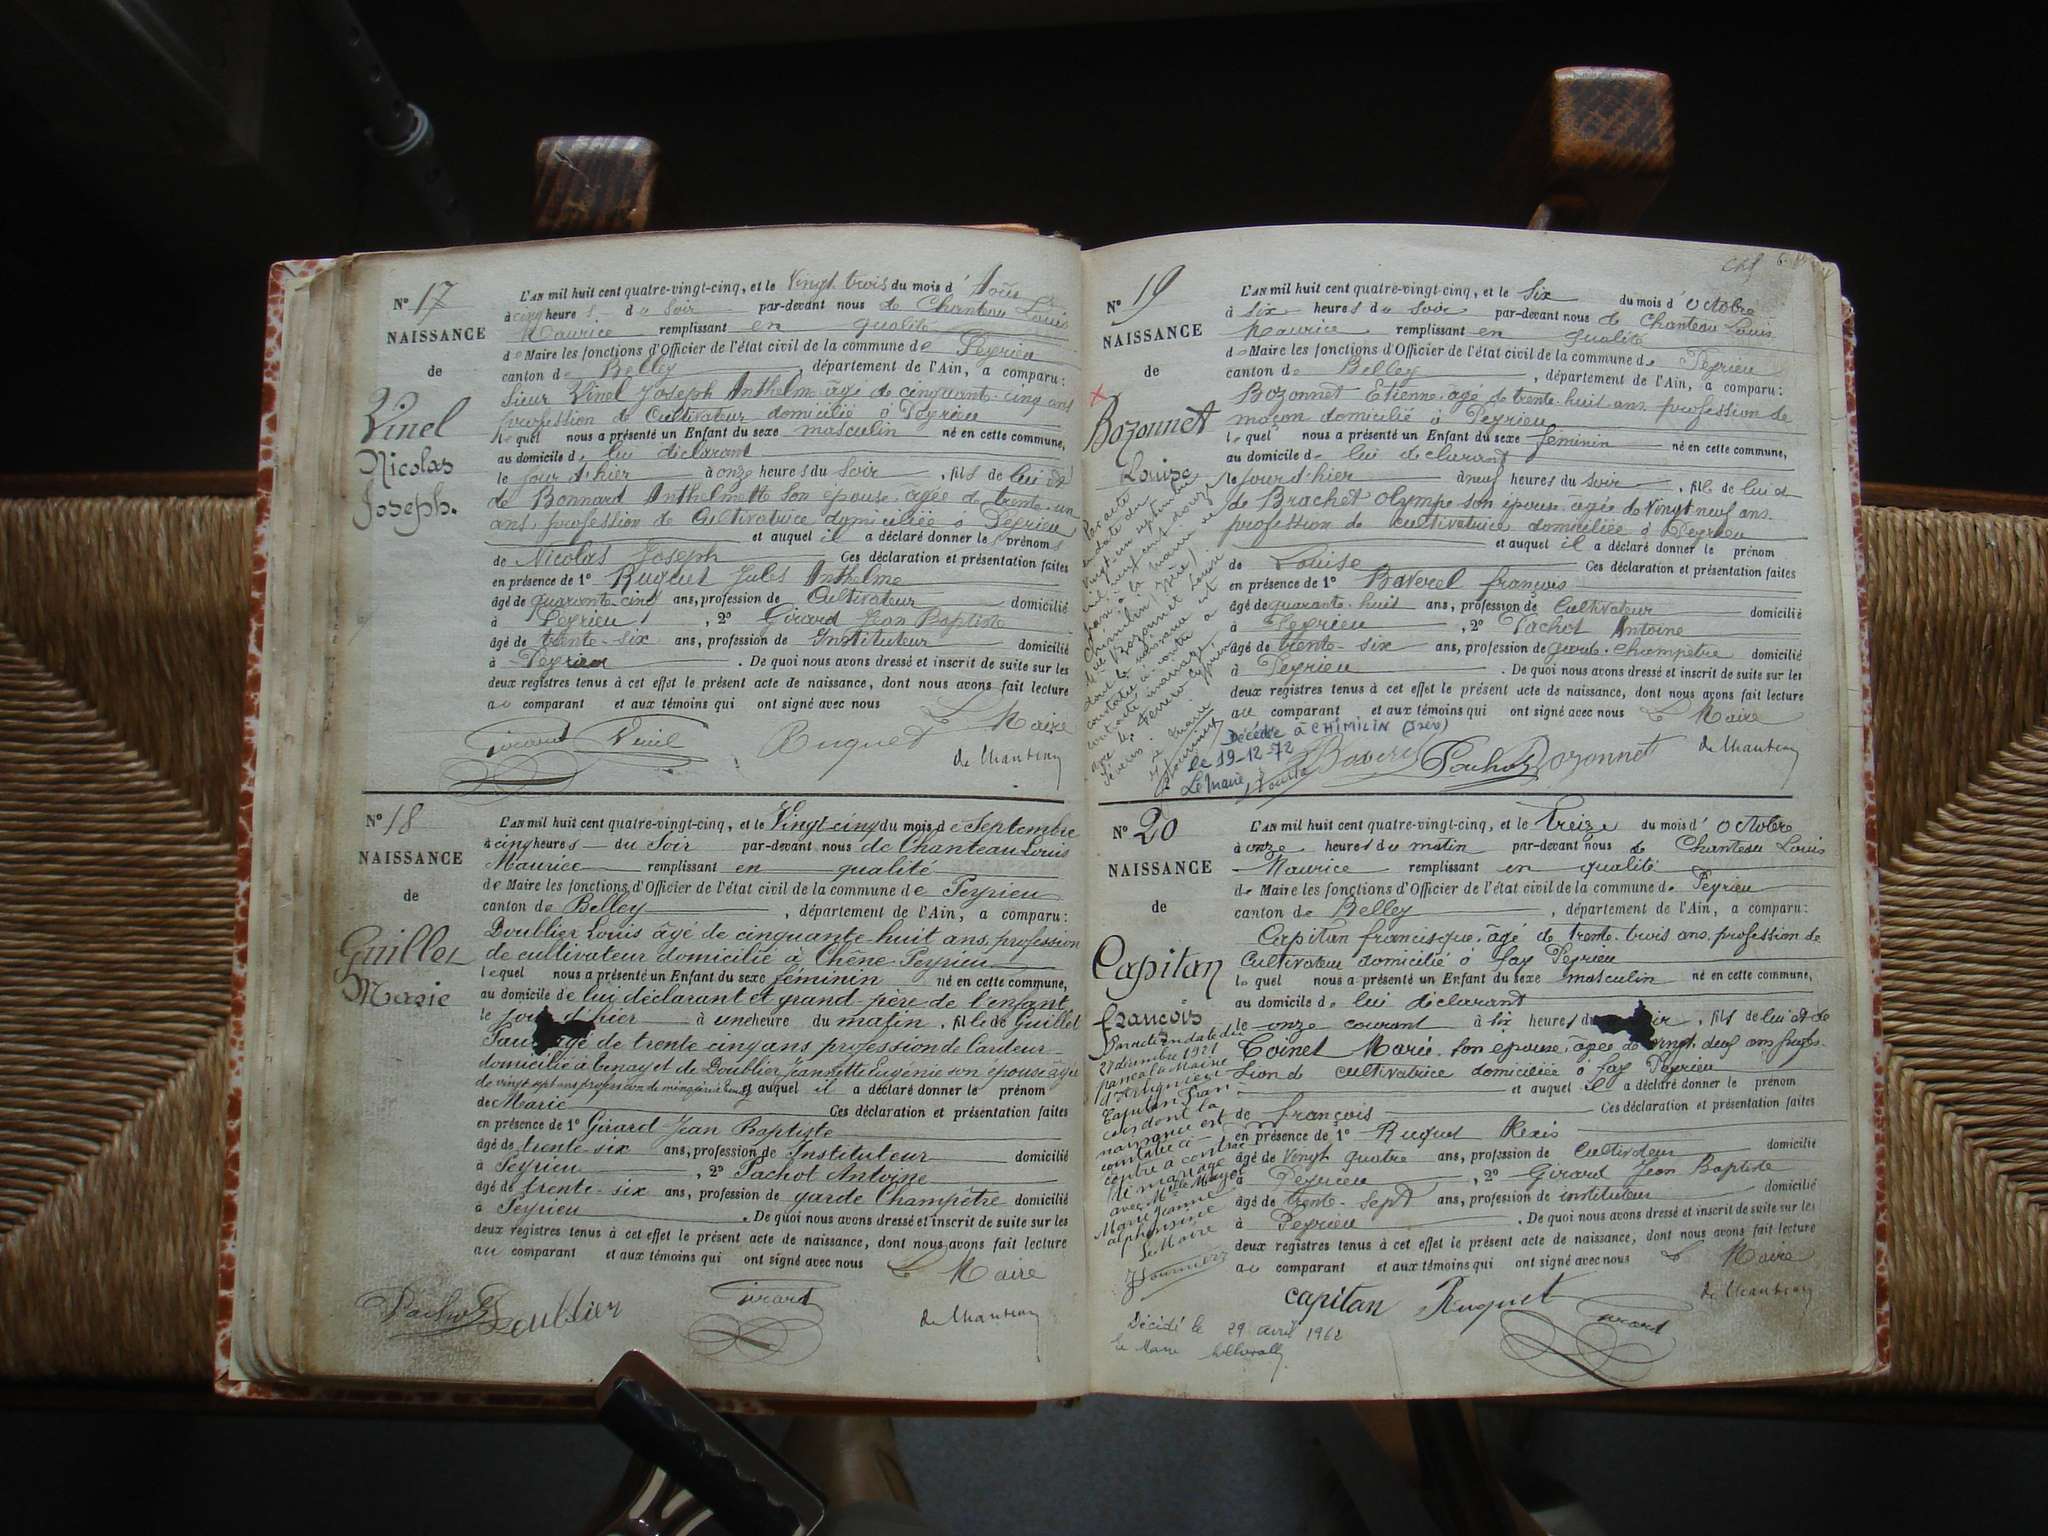 N° 17
NAISSANCE
de
Vinel
Nicolas
Joseph.
L'AN mil huit cent quatre-vingt-cinq, et le Vingt trois du mois d' Août
à cinq heures du Soir par-devant nous de Chanteau Louis
Maurice remplissant en qualité
de Maire les fonctions d'Officier de l'état civil de la commune de Peyrieu
canton de Belley, département de l'Ain, a comparu:
Sieur Vinel Joseph Anthelme âgé de cinquante cinq ans
profession de Cultivateur domicilié à Peyrieu
lequel nous a présenté un Enfant du sexe masculin né en cette commune,
au domicile de lui déclarant
le jour d'hier à onze heures du Soir, fils de lui et
de Bonnard Anthelmette son épouse âgée de trente-un
ans, profession de Cultivatrice domiciliée à Peyrieu
et auquel il a déclaré donner les prénoms
de Nicolas Joseph Ces déclaration et présentation faites
en présence de 1° Ruguet Jules Anthelme
âgé de quarante cinq ans, profession de Cultivateur domicilié
à Peyrieu, 2° Girard Jean Baptiste
âgé de trente-six ans, profession de Instituteur domicilié
à Peyrieu. De quoi nous avons dressé et inscrit de suite sur les
deux registres tenus à cet effet le présent acte de naissance, dont nous avons fait lecture
au comparant et aux témoins qui ont signé avec nous Le Maire
Girard Vinel Ruguet de Chanteau
N° 18
NAISSANCE
de
Guillet
Marie
L'AN mil huit cent quatre-vingt-cinq, et le Vingt-cinq du mois de Septembre
à cinq heures du Soir par-devant nous de Chanteau Louis
Maurice remplissant en qualité
de Maire les fonctions d'Officier de l'état civil de la commune de Peyrieu
canton de Belley, département de l'Ain, a comparu:
Doublier Louis âgé de cinquante-huit ans, profession
de cultivateur domicilié à Chêne-Peyrieu
lequel nous a présenté un Enfant du sexe féminin né en cette commune,
au domicile de lui déclarant et grand-père de l'enfant
le jour d'hier à une heure du matin, fille de Guillet
âgé de trente cinq ans profession de Cardeur
domicilié à Tenay et de Doublier Jeannette Eugénie son épouse âgée
de vingt sept ans profession de ménagère à Tenay et auquel il a déclaré donner le prénom
de Marie Ces déclaration et présentation faites
en présence de 1° Girard Jean Baptiste
âgé de trente-six ans, profession de Instituteur domicilié
à Peyrieu, 2° Pachot Antoine
âgé de trente-six ans, profession de garde Champêtre domicilié
à Peyrieu. De quoi nous avons dressé et inscrit de suite sur les
deux registres tenus à cet effet le présent acte de naissance, dont nous avons fait lecture
au comparant et aux témoins qui ont signé avec nous Le Maire
Pachot Doublier Girard de Chanteau
N° 19
NAISSANCE
de
Bozonnet
Louise
Par acte
en date du
vingt-un septembre
mil neuf cent douze
passé à la mairie de
Chimilin (Isère)
Bozonnet Louise
dont la naissance est
constatée ci-contre a
contracté mariage
avec Ferrero Cyprien
Séverin.
Le Maire
Décédée à CHIMILIN (Isère)
le 19-12-72
Le Maire
L'AN mil huit cent quatre-vingt-cinq, et le Six du mois d' Octobre
à six heures du Soir par-devant nous de Chanteau Louis
Maurice remplissant en qualité
de Maire les fonctions d'Officier de l'état civil de la commune de Peyrieu
canton de Belley, département de l'Ain, a comparu:
Bozonnet Etienne âgé de trente-huit ans profession de
maçon domicilié à Peyrieu
lequel nous a présenté un Enfant du sexe féminin né en cette commune,
au domicile de lui déclarant
le jour d'hier à neuf heures du soir, fille de lui et
de Brachet Olympe son épouse âgée de Vingt neuf ans
profession de cultivatrice domiciliée à Peyrieu
et auquel il a déclaré donner le prénom
de Louise Ces déclaration et présentation faites
en présence de 1° Baverel françois
âgé de quarante-huit ans, profession de Cultivateur domicilié
à Peyrieu, 2° Pachot Antoine
âgé de trente-six ans, profession de garde-champêtre domicilié
à Peyrieu. De quoi nous avons dressé et inscrit de suite sur les
deux registres tenus à cet effet le présent acte de naissance, dont nous avons fait lecture
au comparant et aux témoins qui ont signé avec nous Le Maire
Baverel Pachot Bozonnet de Chanteau
N° 20
NAISSANCE
de
Capitan
françois
Par acte en date du
27 décembre 1921
passé à la Mairie
Capitan Fran
çois dont la
naissance est
constatée ci-
contre a contrac
té mariage
avec Mlle Mayet
Marie Jeanne
alphonsine
Le Maire
Décédé le 29 avril 1962
le Maire
L'AN mil huit cent quatre-vingt-cinq, et le treize du mois d' Octobre
à onze heures du matin par-devant nous de Chanteau Louis
Maurice remplissant en qualité
de Maire les fonctions d'Officier de l'état civil de la commune de Peyrieu
canton de Belley, département de l'Ain, a comparu:
Capitan francisque âgé de trente-trois ans profession de
Cultivateur domicilié à fay Peyrieu
lequel nous a présenté un Enfant du sexe masculin né en cette commune,
au domicile de lui déclarant
le onze courant à six heures du, fils de lui et de
Coinet Marie son épouse âgée de vingt-deux ans profes-
sion de cultivatrice domiciliée à fay Peyrieu
et auquel il a déclaré donner le prénom
de françois Ces déclaration et présentation faites
en présence de 1° Ruguet Alexis
âgé de Vingt quatre ans, profession de Cultivateur domicilié
à Peyrieu, 2° Girard Jean Baptiste
âgé de trente-sept ans, profession de instituteur domicilié
à Peyrieu. De quoi nous avons dressé et inscrit de suite sur les
deux registres tenus à cet effet le présent acte de naissance, dont nous avons fait lecture
au comparant et aux témoins qui ont signé avec nous Le Maire
capitan Ruguet Girard de Chanteau